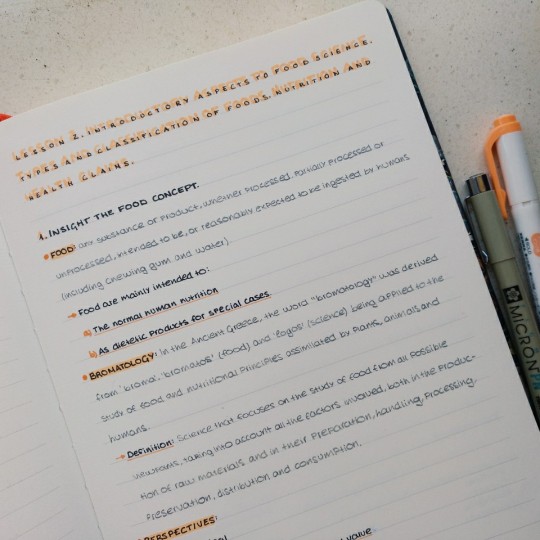 LESSON 2. INTRODUCTORY ASPECTS TO FOOD SCIENCE.
TYPES AND CLASSIFICATION OF FOODS. NUTRITION AND
HEALTH CLAIMS.
1. INSIGHT THE FOOD CONCEPT.
• FOOD: any substance or product, whether processed, partially processed or
unprocessed, intended to be, or reasonably expected to be ingested by humans
(including chewing gum and water).
→ Food are mainly intended to:
a) The normal human nutrition
b) As dietetic products for special cases
• BROMATOLOGY: in the Ancient Greece, the word "bromatology" was derived
from 'broma', 'bromatos' (food) and 'logos' (science) being applied to the
study of food and nutritional principles assimilated by plants, animals and
humans.
→ Definition: Science that focuses on the study of food from all possible
viewpoints, taking into account all the factors involved, both in the produc-
tion of raw materials and in their preparation, handling, processing,
preservation, distribution and consumption.
PERSPECTIVES:
value
MICRON